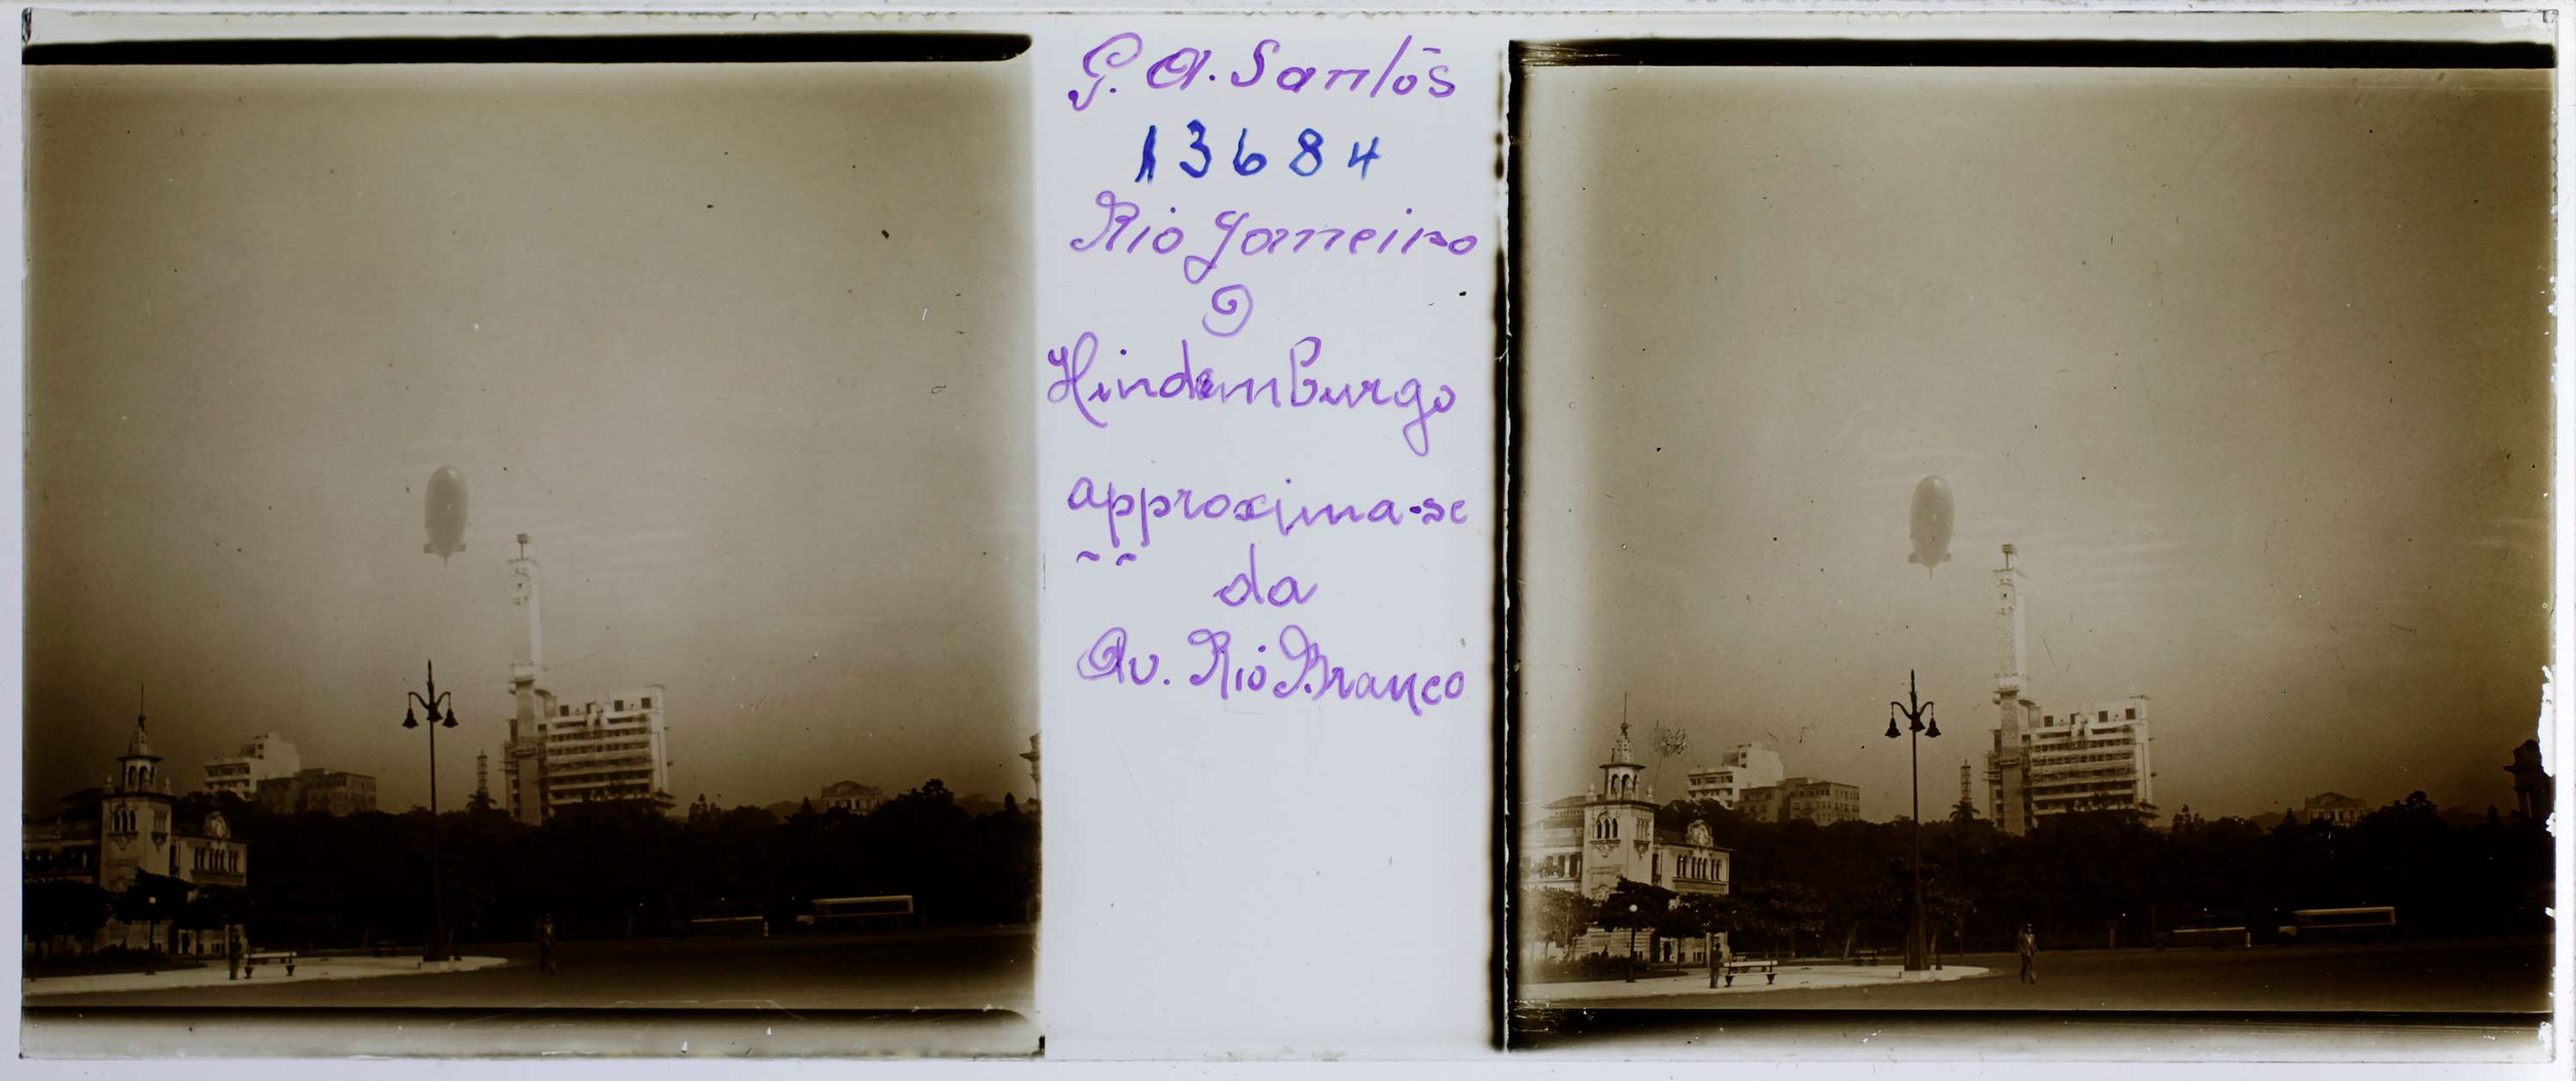 G. A. Santos
13684
Rio Janeiro
O
Hindemburgo
approxima-se
da
Av. Rio Branco